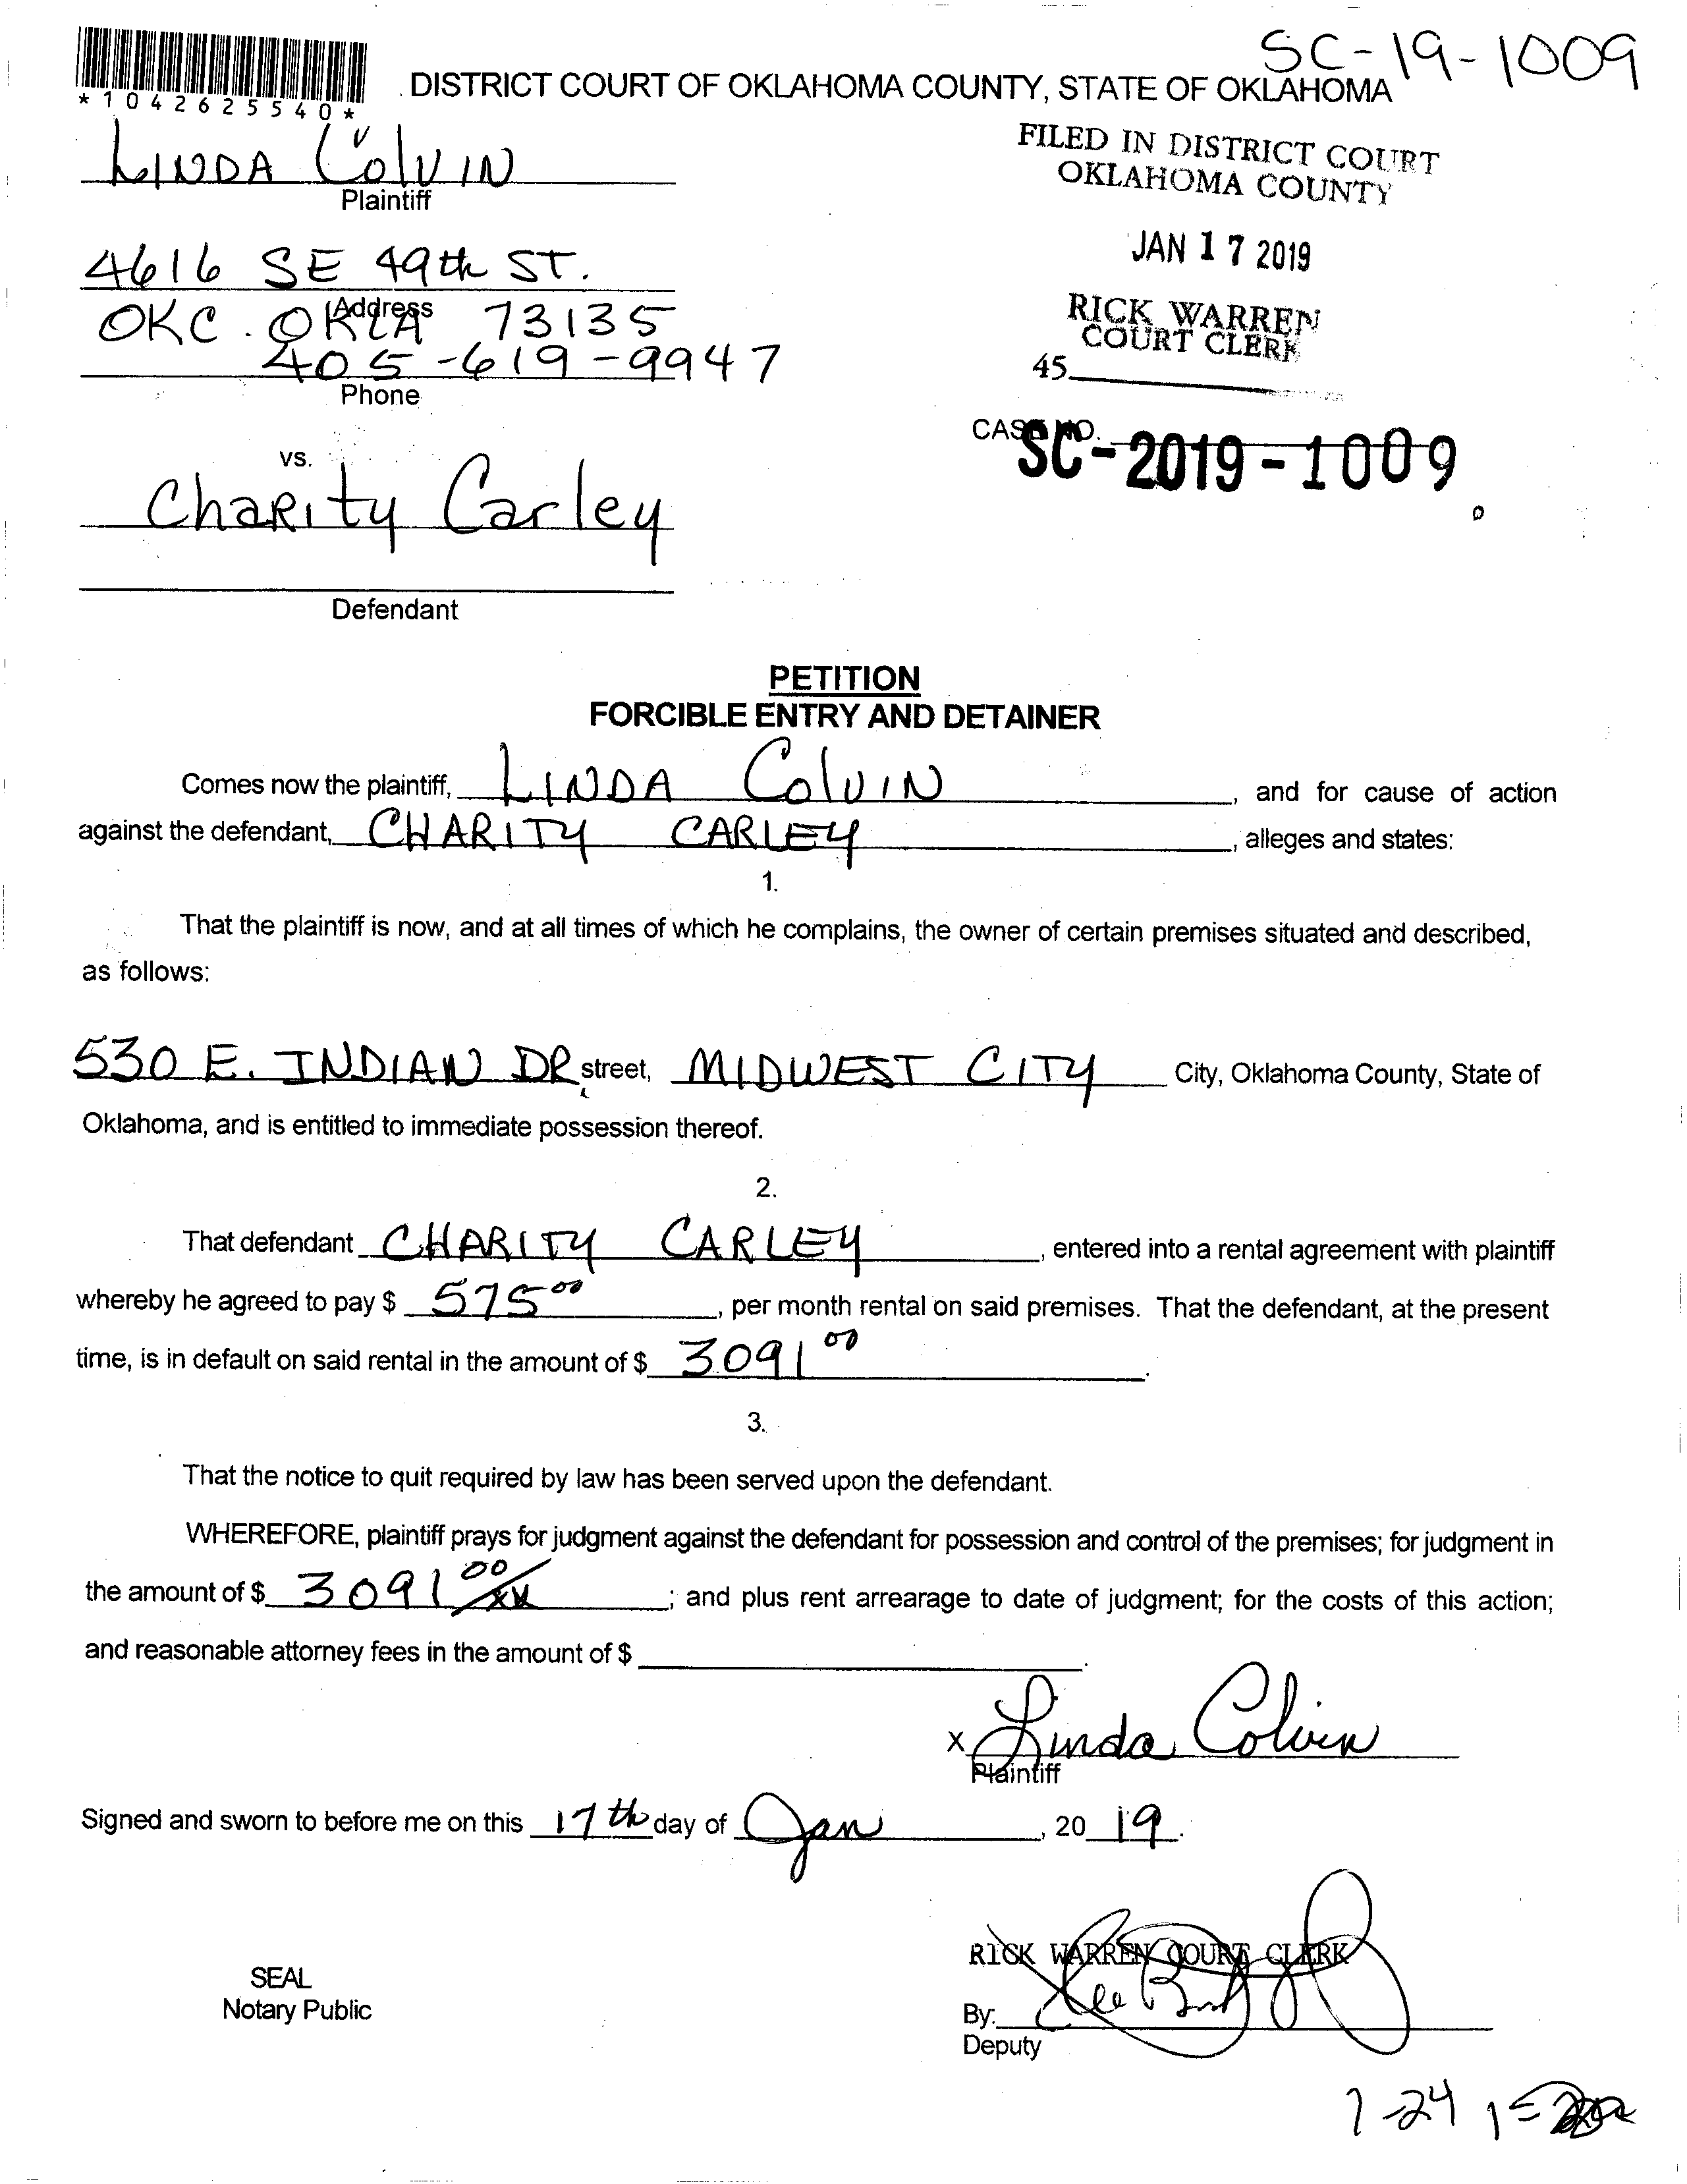 SC-19-1009
*1042625540*
DISTRICT COURT OF OKLAHOMA COUNTY, STATE OF OKLAHOMA
LINDA ColVIN
Plaintiff
FILED IN DISTRICT COURT
OKLAHOMA COUNTY
JAN 17 2019
RICK WARREN
COURT CLERK
45
4616 SE 49th ST.
Address
OKC. OKLA 73135
405-619-9947
Phone
CASE NO.
SC-2019-1009
vs.
Charity Carley
Defendant
PETITION
FORCIBLE ENTRY AND DETAINER
Comes now the plaintiff, LINDA ColVIN, and for cause of action
against the defendant, CHARITY CARLEY, alleges and states:
1.
That the plaintiff is now, and at all times of which he complains, the owner of certain premises situated and described,
as follows:
530 E. INDIAN DR street, MIDWEST CITY City, Oklahoma County, State of
Oklahoma, and is entitled to immediate possession thereof.
2.
That defendant CHARITY CARLEY, entered into a rental agreement with plaintiff
whereby he agreed to pay $ 575 00, per month rental on said premises. That the defendant, at the present
time, is in default on said rental in the amount of $ 3091 00.
3.
That the notice to quit required by law has been served upon the defendant.
WHEREFORE, plaintiff prays for judgment against the defendant for possession and control of the premises; for judgment in
the amount of $ 3091 00/xx; and plus rent arrearage to date of judgment; for the costs of this action;
and reasonable attorney fees in the amount of $ .
X Linda Colvin
Plaintiff
Signed and sworn to before me on this 17th day of Jan, 20 19.
RICK WARREN COURT CLERK
SEAL
Notary Public
By:
Deputy
1-24